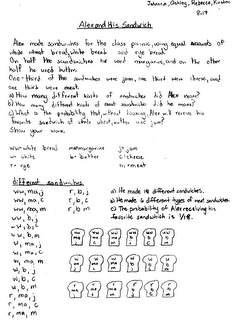 Johanna, Ashley, Rebecca, Kirsten
8:14
Alex and His Sandwich
Alex made sandwiches for the class picnic, using equal amounts of
whole wheat bread, white bread and rye bread.
On half the sandwiches he used margarine, and on the other
half he used butter.
One third of the sandwiches were jam, one third were cheese, and
one third were meat.
a) How many different kinds of sandwiches did Alex make?
b) How many different kinds of meat sandwiches did he make?
c) What is the probability that, without looking, Alex will receive his
favourite sandwich of whole wheat, butter and jam?
Show your work.
ww = wheat bread ma = margarine j = jam
w = white b = butter c = cheese
r = rye m = meat
different sandwiches
ww, ma, j r, b, j
ww, ma, c r, b, c
ww, ma, m r, b, m
ww, b, j
ww, b, c
ww, b, m
w, ma, j
w, ma, c
w, ma, m
w, b, j
w, b, c
w, b, m
r, ma, j
r, ma, c
r, ma, m
a) He made 18 different sandwiches.
b) He made 6 different types of meat sandwiches
c) The probability of Alex receiving his
favorite sandwich is 1/18.